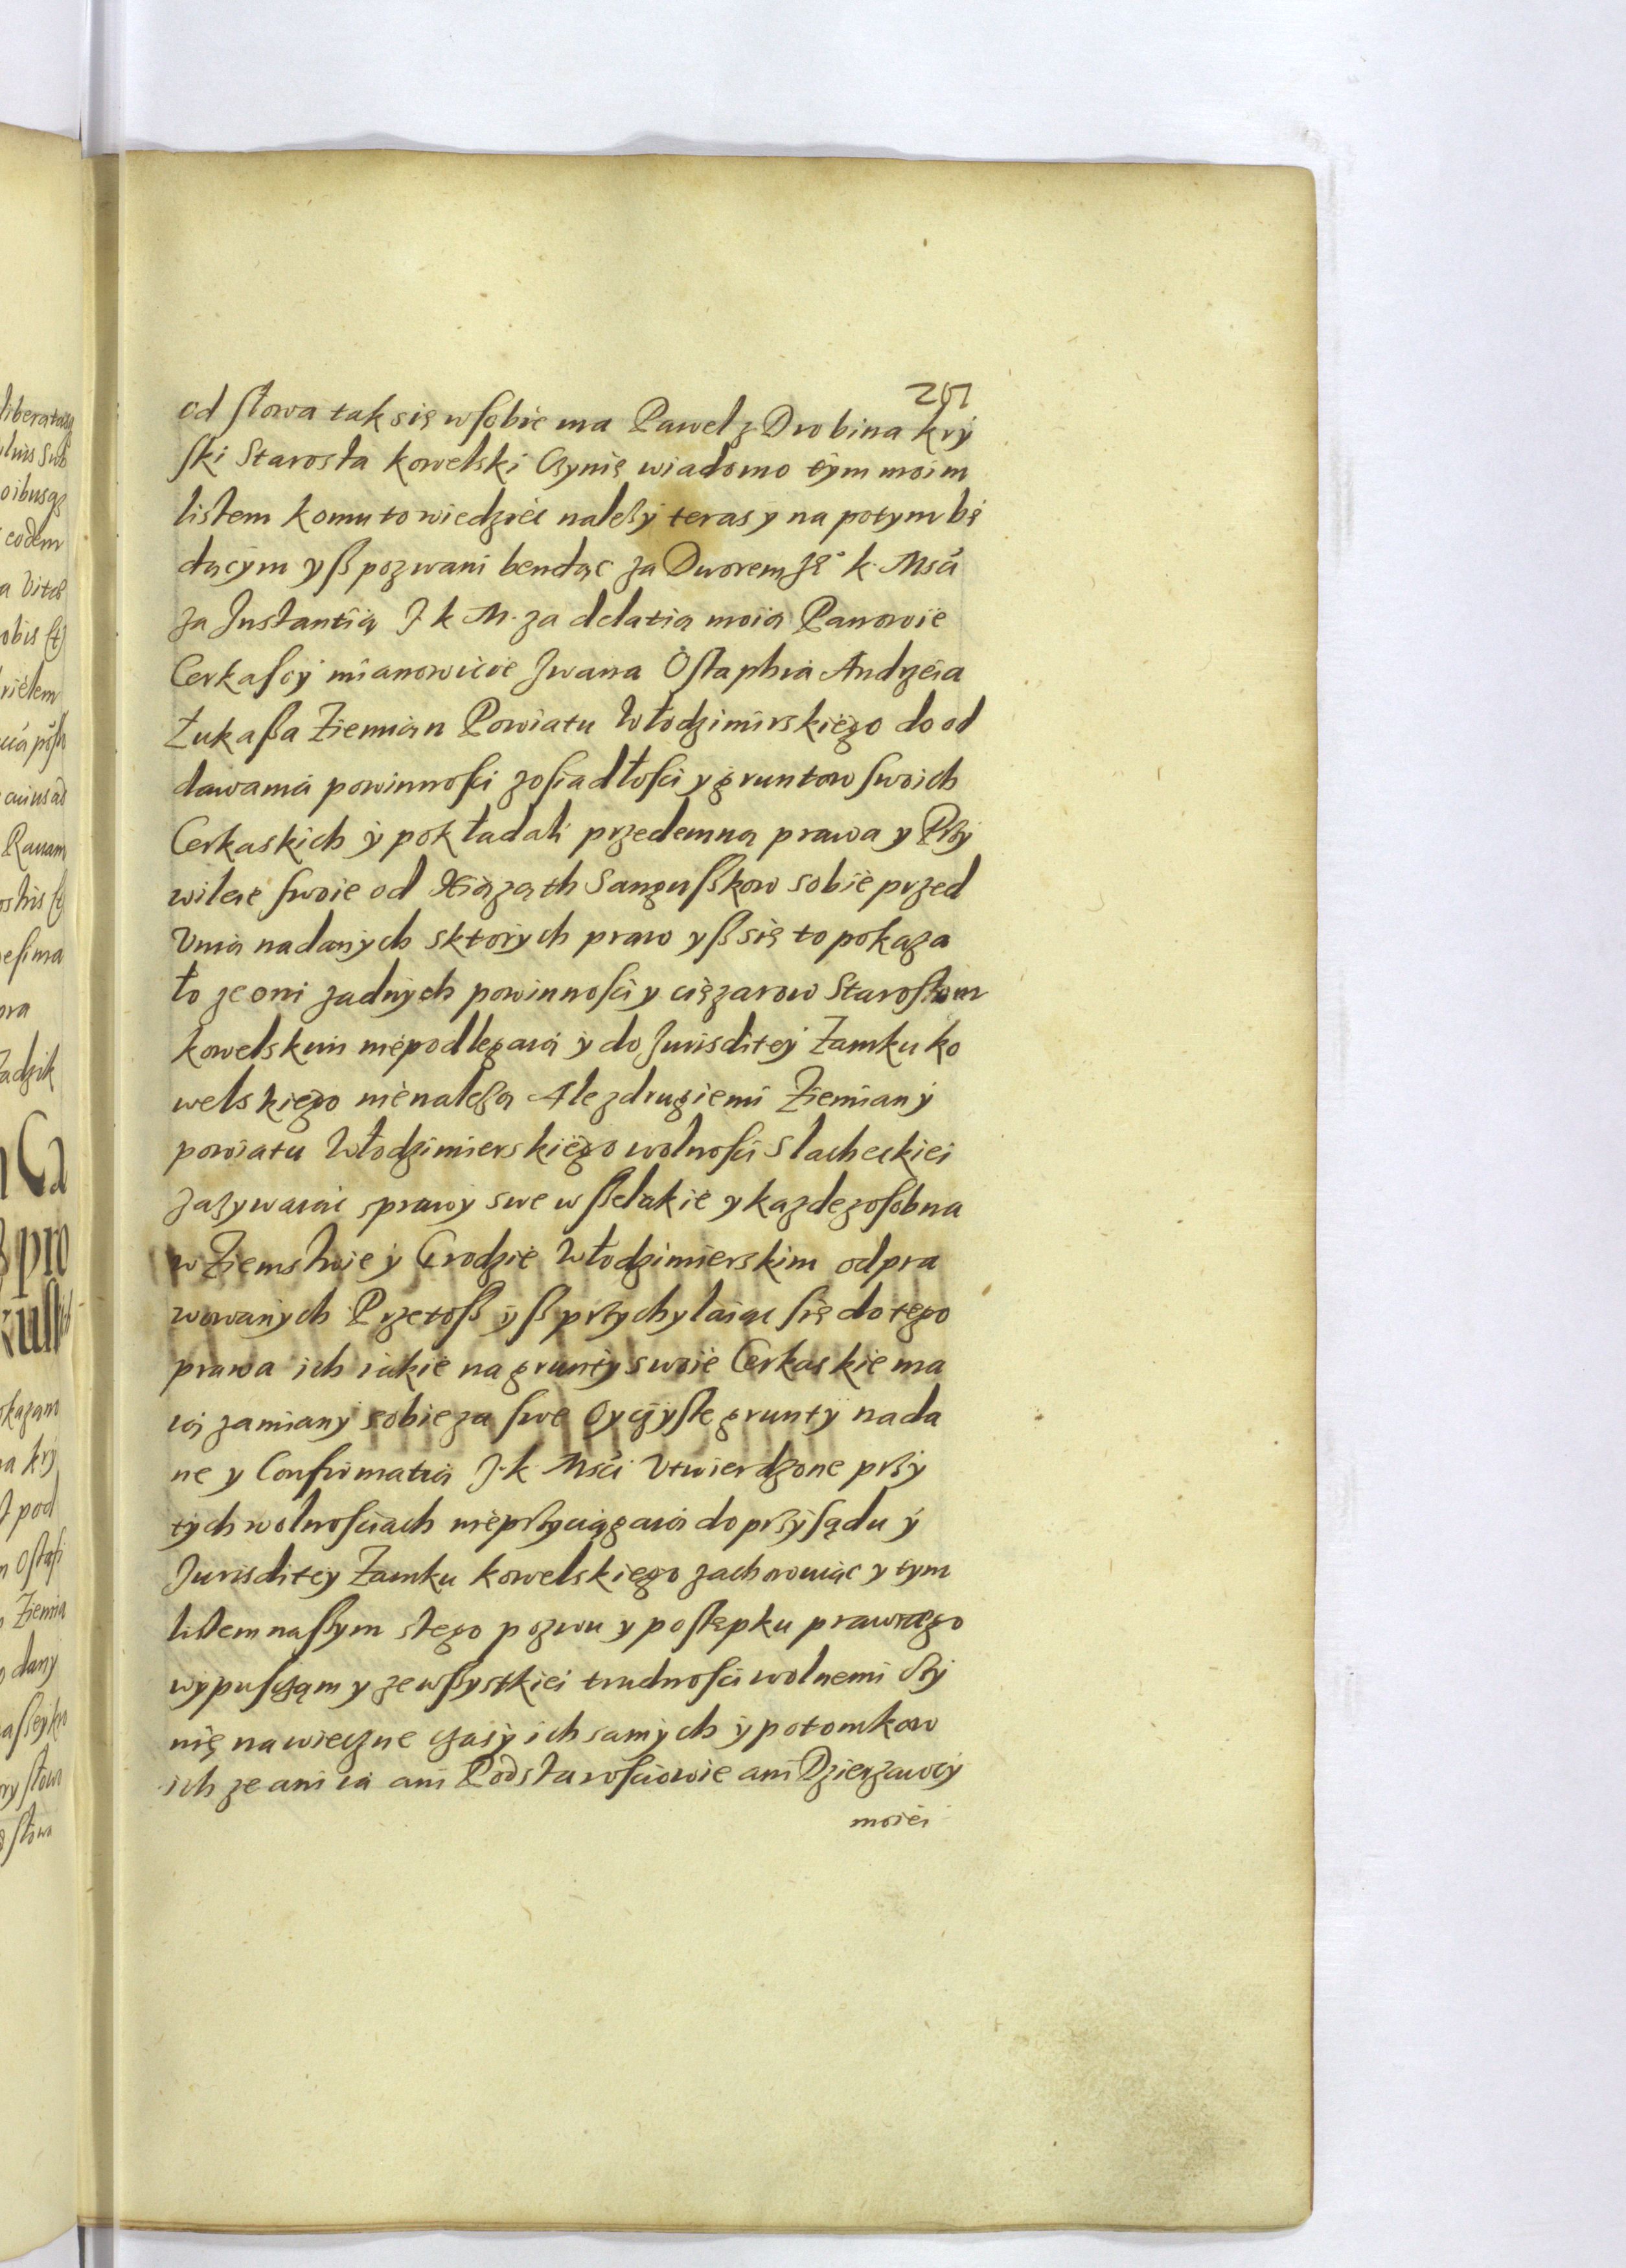 201
od słowa tak się w sobie ma Pawel z Drobina kry
ski Starosta kowelski Czynię wiadomo tym moim
listem komu to wiedziec należy teras y na potym bę
dącym yß pozwani bendąc za Dworem Je° k. Msći
za Instantią J k M. za delatią moią Panowie
Cerkascy mianowicie Jwana Ostaphia Andrzeia
Łukaßa Ziemian Powiatu Włodzimirskiego do od
dawania powinnosci z osiadłosci y gruntow swoich
Cerkaskich y pokładali przedemną prawa y Przy
wileie swoie od Xiążąth Sangußkow sobie przed
Unią nadanych s ktorych praw yß się to pokaza
ło ze oni zadnych powinnosci y ciężarow Starostom
kowelskim niepodlegaią y do Jurisditey Zamku ko
welskiego nienależą Ale z drugiemi Ziemiany
powiatu Włodzimierskiego wolnosci Slacheckiei
zazywaiąc sprawy swe wßelakie y kazde zosobna
w Ziemstwie y Grodzie Włodzimierskim odpra
wowanych Przetoß yß przychylaiąc się do tego
prawa ich iakie na grunty swoie Cerkaskie ma
ią zamiany sobie za swe Oyczyste grunty nada
ne y Confirmatią J. k. Msći Utwierdzone przy
tych wolnosciach nieprzyciągaią do przysądu y
Jurisditey Zamku kowelskiego zachowuiąc y tym
listem naßym s tego pozwu y postępku prawnego
wypusczam y ze wßystkiei trudnosci wolnemi czy
nię na wieczne czasy ich samych y potomkow
ich ze ani ia ani Podstarosciowie ani Dzierzawcy
moiei